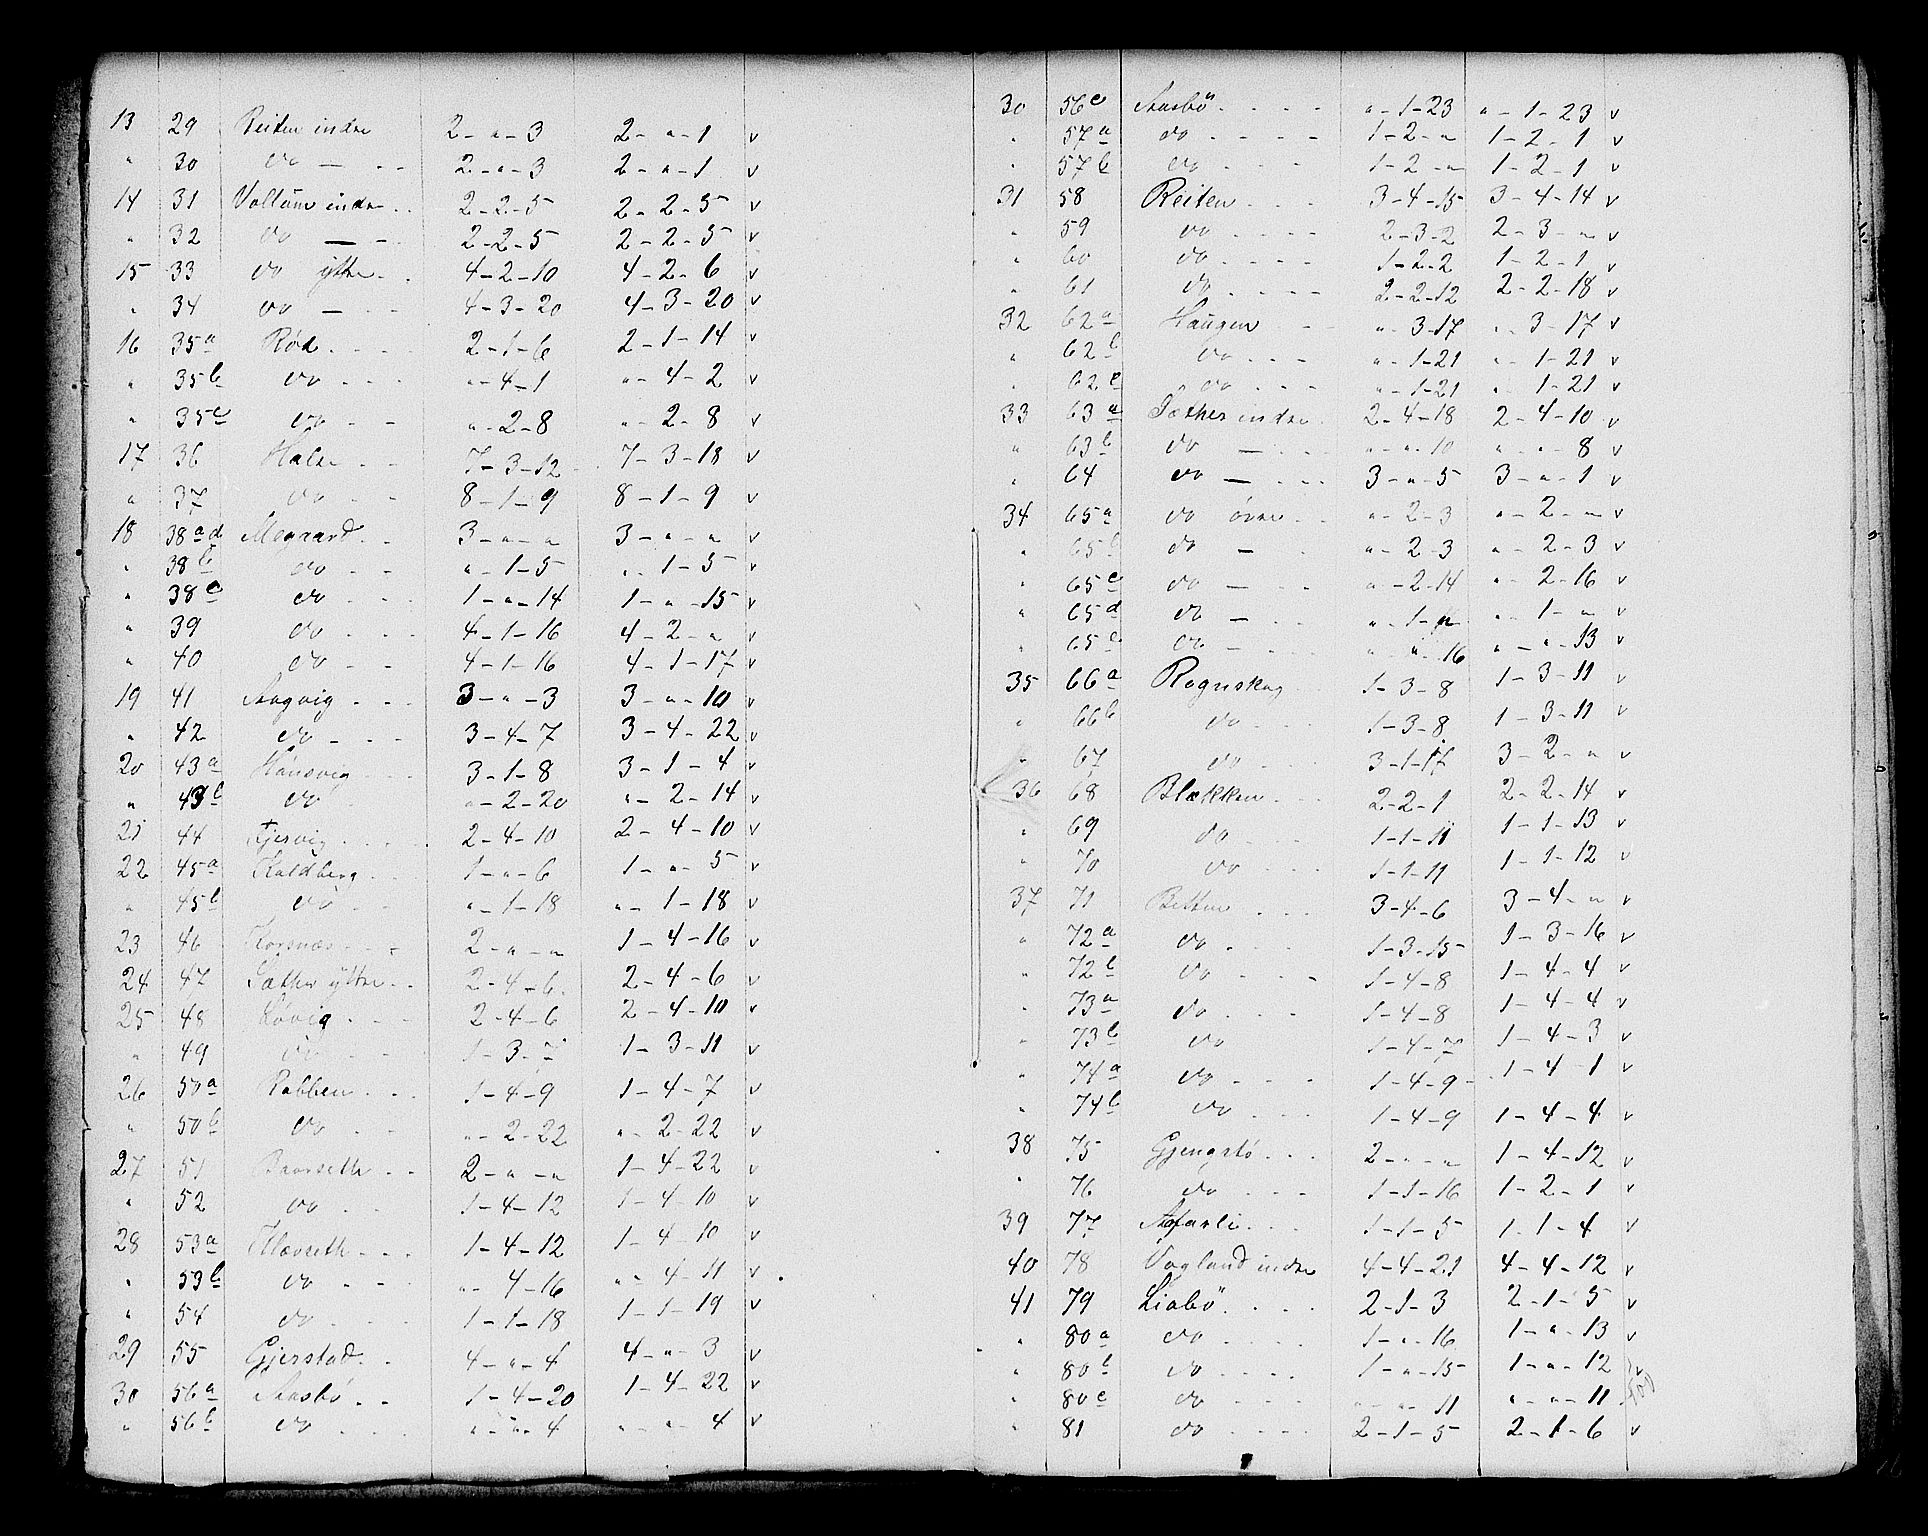 13 29 Reiten indre 2 - " - 3 2 - " - 1 v
" 30 do — - - 2 - " - 3 2 - " - 1 v
14 31 Valtum indre - - 2 - 2 - 5 2 - 2 - 5 v
" 32 do — - - 2 - 2 - 5 2 - 2 - 5 v
15 33 do ytre - - 4 - 2 - 10 4 - 2 - 6 v
" 34 do — - - 4 - 3 - 20 4 - 3 - 20 v
16 35a Röd - - - 2 - 1 - 6 2 - 1 - 14 v
" 35b do - - - " - 4 - 1 " - 4 - 2 v
" 35c do - - " - 2 - 8 " - 2 - 8 v
17 36 Halse - - 7 - 3 - 12 7 - 3 - 18 v
" 37 do - - 8 - 1 - 9 8 - 1 - 9 v
18 38a d Megaard - - 3 - " - " 3 - " - " v
" 38b do - - " - 1 - 5 " - 1 - 5 v
" 38c do - - - 1 - " - 14 1 - " - 15 v
" 39 do - - - 4 - 1 - 16 4 - 2 - " v
" 40 do - - 4 - 1 - 16 4 - 1 - 17 v
19 41 Aagvig - - - 3 - " - 3 3 - " - 10 v
" 42 do - - - 3 - 4 - 7 3 - 4 - 22 v
20 43a Hönsvig - - - 3 - 1 - 8 3 - 1 - 4 v
" 43b do - " - 2 - 20 " - 2 - 14 v
21 44 Tjervig - - - - 2 - 4 - 10 2 - 4 - 10 v
22 45a Kaldberg - - 1 - " - 6 1 - " - 5 v
" 45b do - - " - 1 - 18 " - 1 - 18 v
23 46 Korsnæs - - - 2 - " - " 1 - 4 - 16 v
24 47 Sæther ytre - - 2 - 4 - 6 2 - 4 - 6 v
25 48 Lövig - - - 2 - 4 - 6 2 - 4 - 10 v
" 49 do - - 1 - 3 - 7 1 - 3 - 11 v
26 50a Rabben - - - 1 - 4 - 9 1 - 4 - 7 v
" 50b do - - " - 2 - 22 " - 2 - 22 v
27 51 Baarseth - - 2 - " - " 1 - 4 - 22 v
" 52 do - - 1 - 4 - 12 1 - 4 - 10 v
28 53a Hævseth - - - 1 - 4 - 12 1 - 4 - 10 v
" 53b do - - " - 4 - 16 " - 4 - 11 v
" 54 do - - - 1 - 1 - 18 1 - 1 - 19 v
29 55 Gjerstad - - 4 - " - 4 4 - " - 3 v
30 56a Aasbö - - 1 - 4 - 20 1 - 4 - 22 v
" 56b do - - - " - " - 4 " - " - 4 v
30 56c Aasbö - - - - " - 1 - 23 " - 1 - 23 v
" 57a do - - - - 1 - 2 - " 1 - 2 - 1 v
" 57b do - - - 1 - 2 - " 1 - 2 - 1 v
31 58 Reiten - - - 3 - 4 - 15 3 - 4 - 14 v
" 59 do - - - - 2 - 3 - 2 2 - 3 - " v
" 60 do - - - - 1 - 2 - 2 1 - 2 - 1 v
" 61 do - - - - 2 - 2 - 12 2 - 2 - 18 v
32 62a Haugen - - " - 3 - 17 " - 3 - 17 v
" 62b do - - - " - 1 - 21 " - 1 - 21 v
" 62c do - - - - " - 1 - 21 " - 1 - 21 v
33 63a Sæther indre - 2 - 4 - 18 2 - 4 - 10 v
" 63b do — - - - " - " - 10 " - " - 8 v
" 64 do — - - - 3 - " - 5 3 - " - 1 v
34 65a do övre - - " - 2 - 3 " - 2 - " v
" 65b do — - " - 2 - 3 " - 2 - 3 v
" 65c do — - - " - 2 - 14 " - 2 - 16 v
" 65d do — - - " - 1 - " " - 1 - " v
" 65e do — - - - " - " - 16 " - " - 13 v
35 66a Rognskog 1 - 3 - 8 1 - 3 - 11 v
" 66b do - - - 1 - 3 - 8 1 - 3 - 11 v
" 67 do - - - 3 - 1 - 17 3 - 2 - " v
36 68 Blekken - - - 2 - 2 - 1 2 - 2 - 14 v
" 69 do - - - 1 - 1 - 11 1 - 1 - 13 v
" 70 do - - - 1 - 1 - 11 1 - 1 - 12 v
37 71 Betten - - - 3 - 4 - 6 3 - 4 - " v
" 72a do - - - 1 - 3 - 15 1 - 3 - 16 v
" 72b do - - - - 1 - 4 - 8 1 - 4 - 4 v
" 73a do - - - 1 - 4 - 8 1 - 4 - 4 v
" 73b do 1 - 4 - 7 1 - 4 - 3 v
" 74a do - - - 1 - 4 - 9 - 1 - 4 - 1 v
" 74b do - - - 1 - 4 - 9 1 - 4 - 4 v
38 75 Gjengstö - - - 2 - " - " 1 - 4 - 12 v
" 76 do - - - 1 - 1 - 16 1 - 2 - 1 v
39 77 Aafarli - - - 1 - 1 - 5 1 - 1 - 4 v
40 78 Vagland indre 4 - 4 - 21 4 - 4 - 12 v
41 79 Liabö - - - - 2 - 1 - 3 2 - 1 - 5 v
" 80a do - - - - 1 - " - 16 1 - " - 13 v
" 80b do - - - 1 - " - 15 1 - " - 12 v
" 80c do - - - - " - " - 11 " - " - 11
" 81 do - - - - 2 - 1 - 5 2 - 1 - 6 v